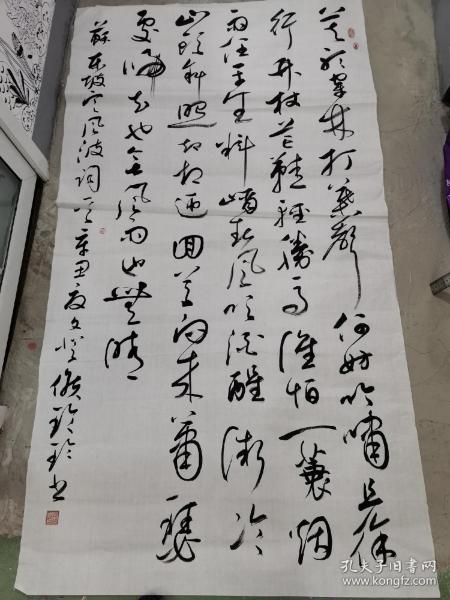 莫听穿林打叶声何妨吟啸且徐
行竹杖芒鞋轻胜马谁怕一蓑烟
雨任平生料峭春风吹酒醒微冷
山头斜照却相迎回首向来萧瑟
处归去也无风雨也无晴
苏东坡定风波词一首辛丑夏文登侯玲玲书
孔夫子旧书网
www.kongfz.com